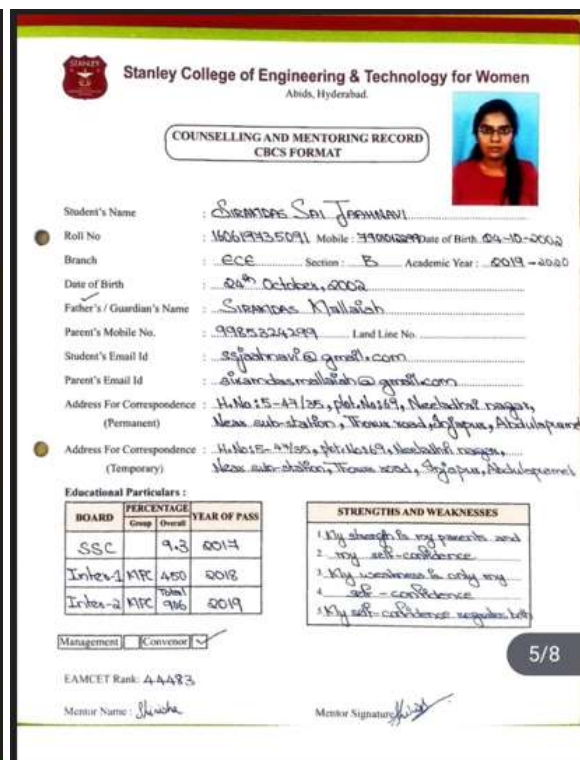 STANLEY
Stanley College of Engineering & Technology for Women
Abids, Hyderabad.
COUNSELLING AND MENTORING RECORD
CBCS FORMAT
Student's Name : SIRAMDAS SAI JAAHNAVI
Roll No : 160619735091 Mobile : Date of Birth 24-10-2002
Branch : ECE Section : B Academic Year : 2019-2020
Date of Birth : 24th October, 2002
Father's / Guardian's Name : SIRAMDAS Mallaiah
Parent's Mobile No. : 9985324299 Land Line No.
Student's Email Id : ssjaahnavi@gmail.com
Parent's Email Id : siramdasmallaiah@gmail.com
Address For Correspondence : H.No:5-47/35, plot.No:69, Neeladhri nagar,
(Permanent) Near sub-station, road, Injapur, Abdulapurmet
Address For Correspondence : H.No:5-47/35, plot.No:69, Neeladhri nagar,
(Temporary) Near sub-station, road, Injapur, Abdulapurmet
Educational Particulars :
BOARD PERCENTAGE YEAR OF PASS
Group Overall
SSC 9.3 2017
Inter-1 MPC 450 2018
Inter-2 MPC Total 2019
STRENGTHS AND WEAKNESSES
1 My strength is my parents and
2 my self-confidence
3 My weakness is only my
4 self-confidence
5 My self-confidence both
Management Convenor ✓
EAMCET Rank: 44483
Mentor Name : Shirisha
Mentor Signature
5/8